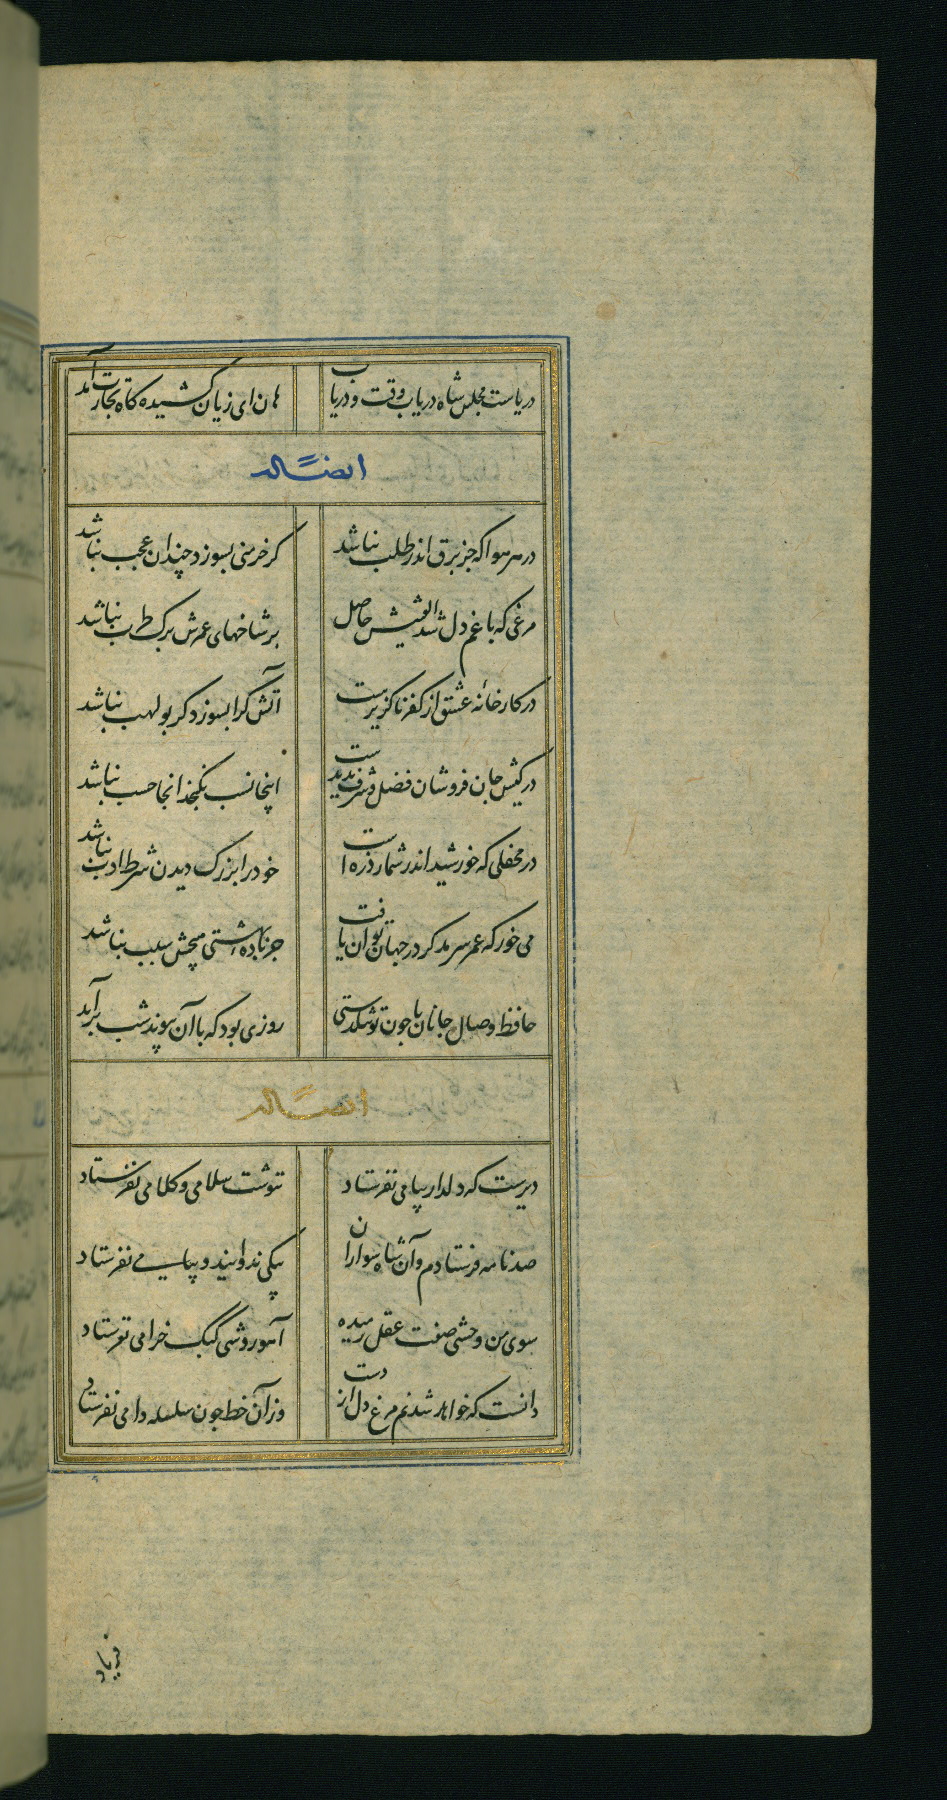 دریاست مجلس شاه دریاب وقت و دریاب
هان ای زیان کشیده کاه تجارت آمد
ایضاً له
در هر هوا که جز برق اندر طلب نباشد
کر خرمنی بسوزد چندان عجب نباشد
مرغی که با غم دل شد الفتیش حاصل
بر شاخهای عمرش برک طرب نباشد
در کارخانه عشق از کفر ناکزیرست
آتش کرا بسوزد کر بولهب نباشد
در کیش جان فروشان فضل و شرف
اینجا نسب نکنجد انجا حسب نباشد
در محفلی که خورشید اندر شمار ذره است
خود را بزرک دیدن شرط ادب نباشد
می خور که عمر سرمد کر در جهان توان یافت
جز باده بهشتی هیچش سبب نباشد
حافظ وصال جانان با جون تو تنکدستی
روزی بود که با آن پیوند شب برآید
ایضاً له
دیرست که دلدار پیامی نفرستاد
ننوشت سلامی و کلامی نفرستاد
صد نامه فرستادم و آن شاه سواران
پیکی ندوانید و پیامی نفرستاد
سوی من وحشی صفت عقل رمیده
آهو روشی کبک خرامی نفرستاد
دانست که خواهد شدنم مرغ دل از دست
وز آن خط جون سلسله دامی نفرستاد
فریاد